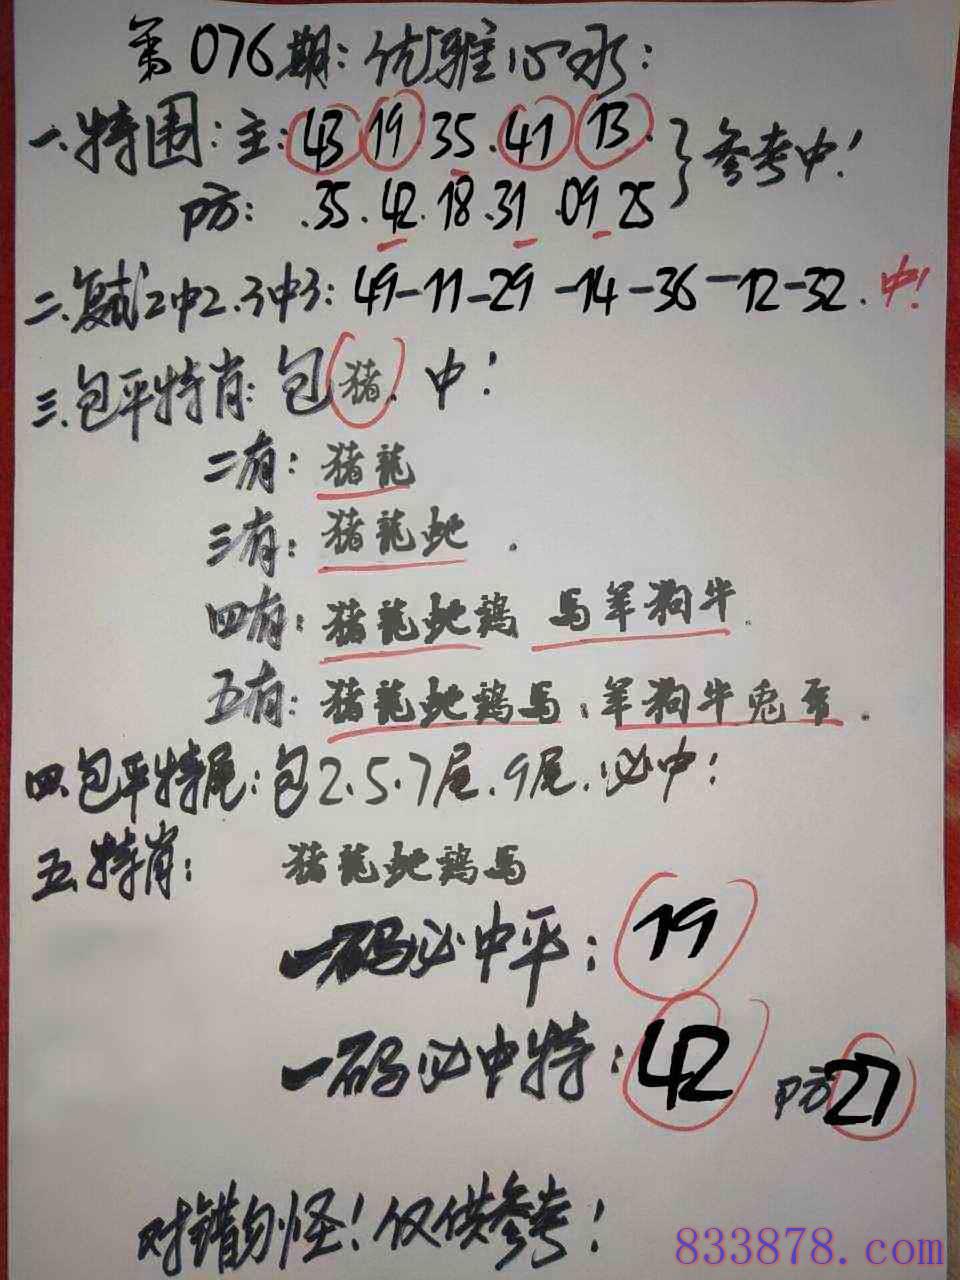 第076期:优雅心水:
一.特围:主:43 19 35.41 13.
防:.35.42.18.31.09 25
参考中!
二.复试2中2.3中3:49-11-29-14-36-12-32.中!
三.包平特肖:包猪.中!
二有:猪龍
三有:猪龍蛇.
四有:猪龍蛇鷄 馬羊狗牛.
五有:猪龍蛇鷄馬:羊狗牛兎.
四.包平特尾:包2.5.7尾.9尾.必中!
五.特肖:猪龍蛇鷄馬
一码必中平:19
一码必中特:42 防27
对错勿怪!仅供参考!
833878.com